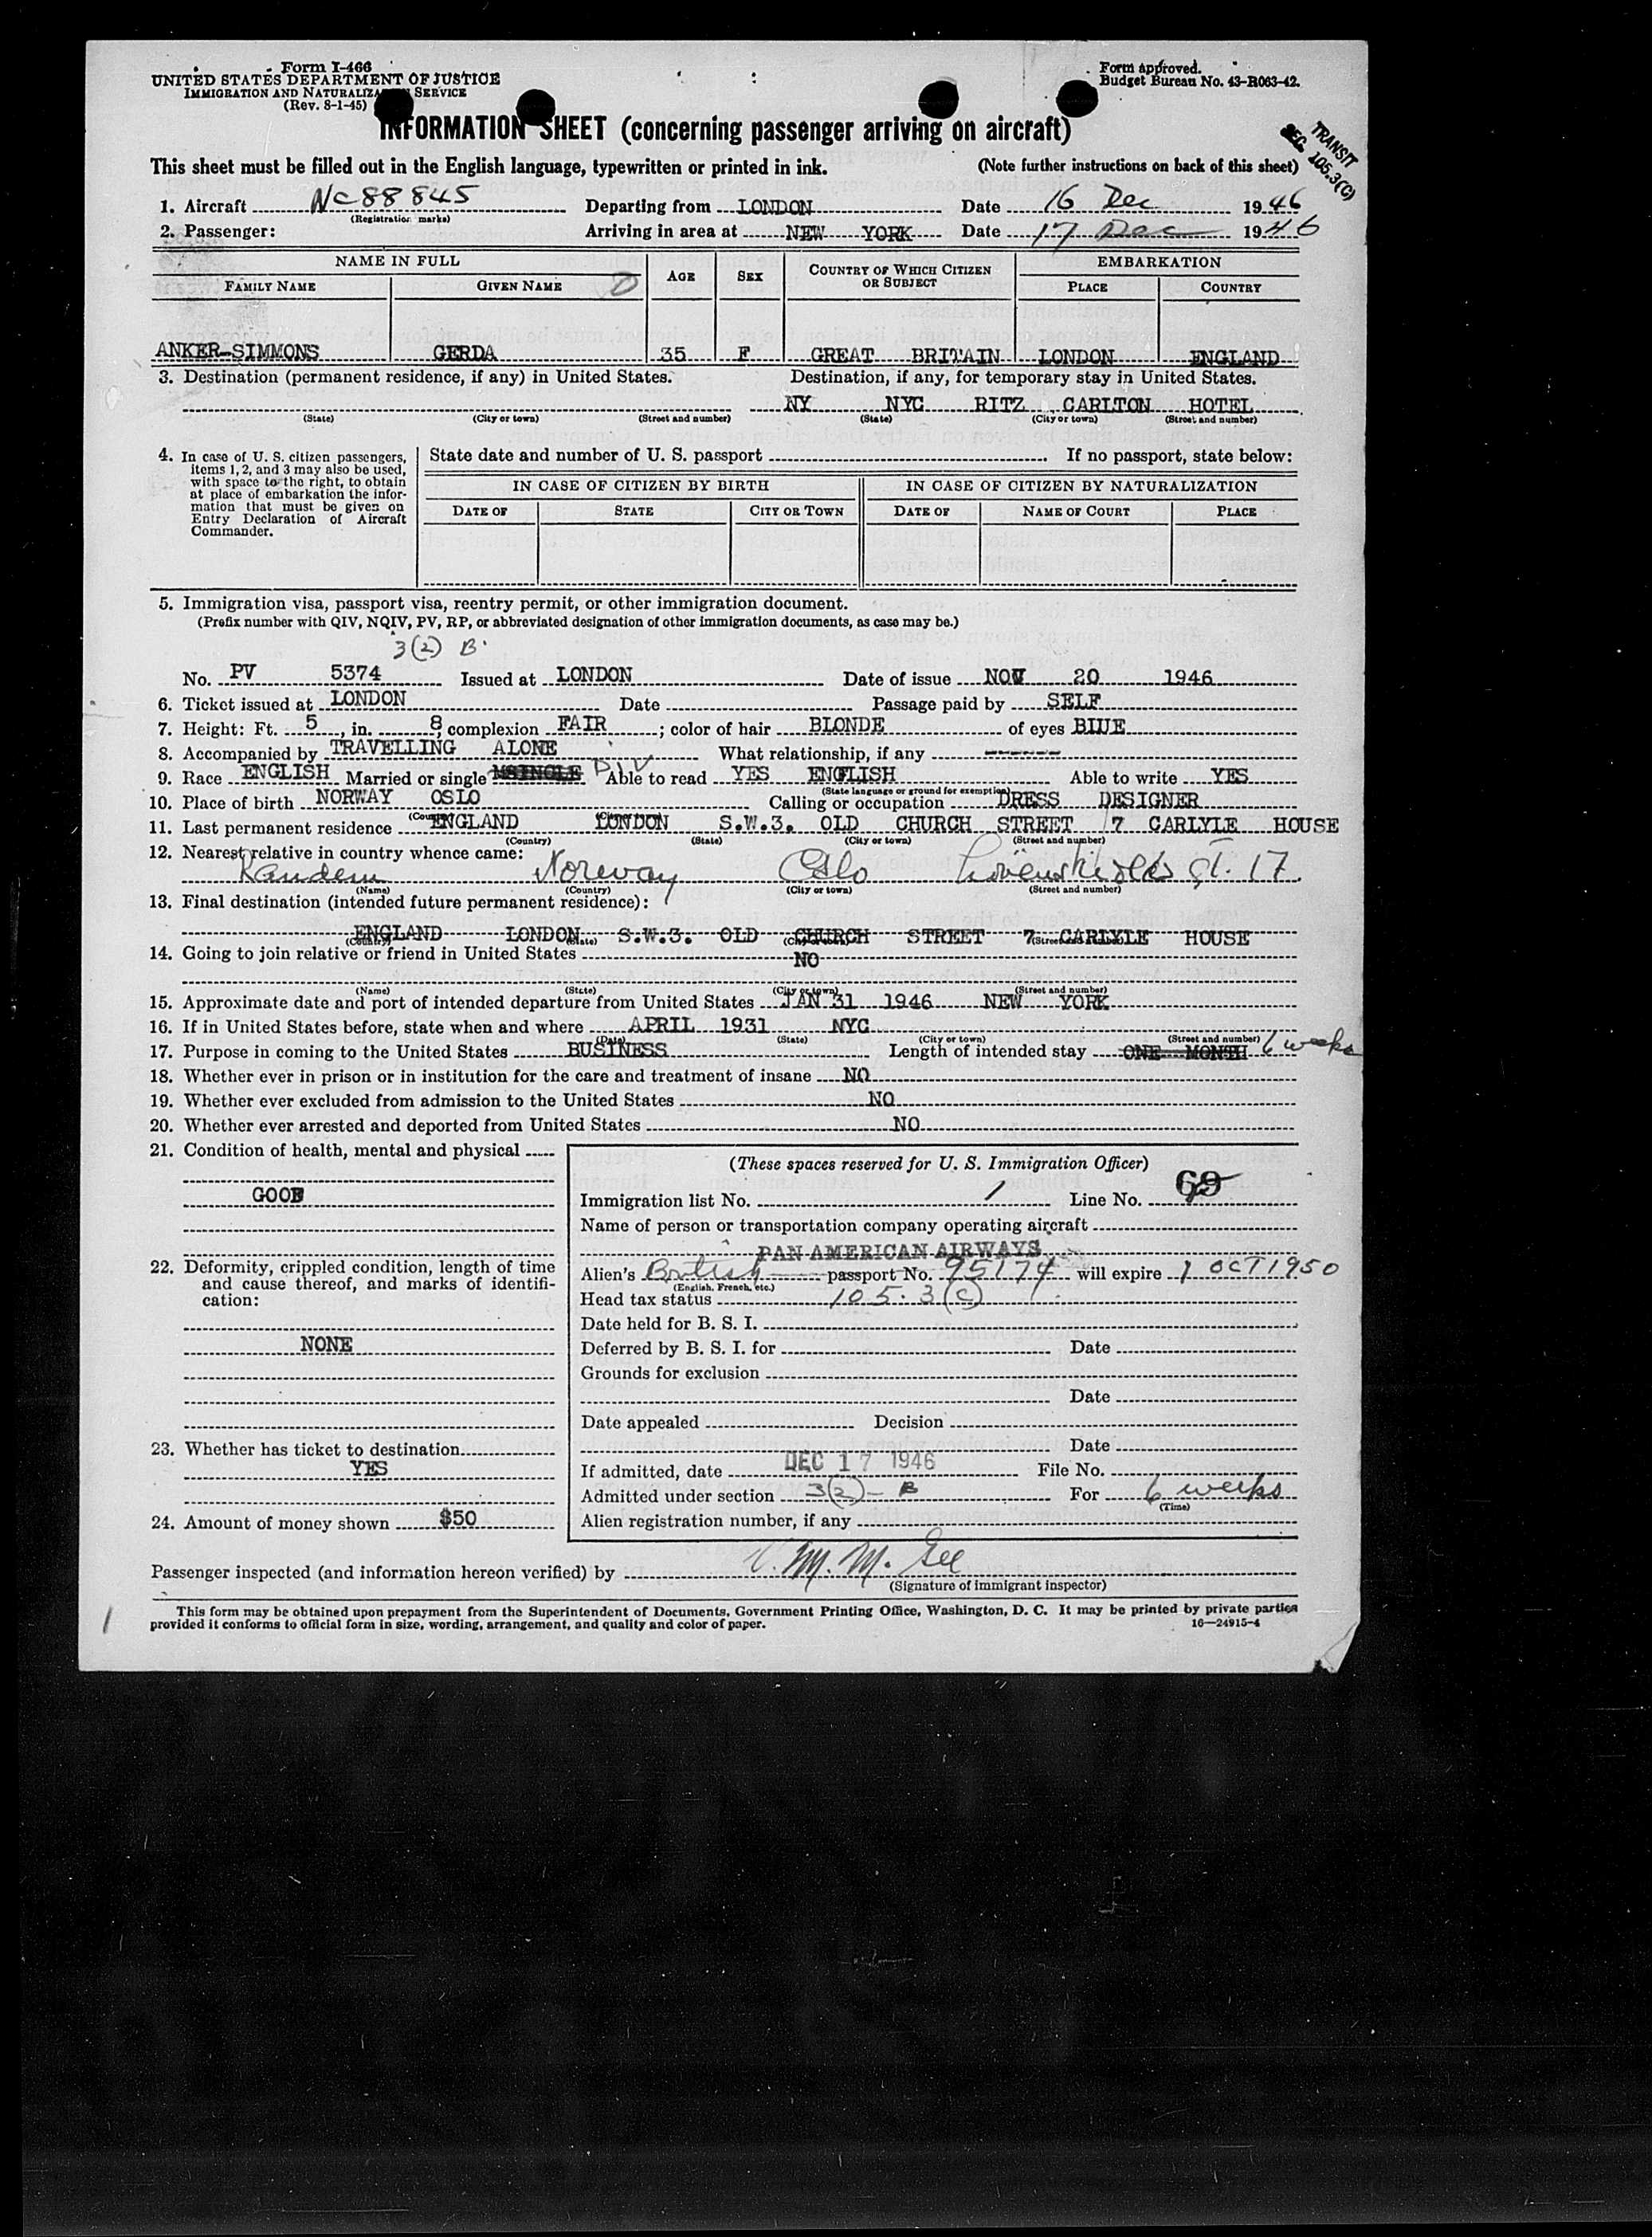 Form I-466
UNITED STATES DEPARTMENT OF JUSTICE
IMMIGRATION AND NATURALIZATION SERVICE
(Rev. 8-1-45)
Form approved.
Budget Bureau No. 43-R063-42.
TRANSIT
SEC. 105.3(C)
INFORMATION SHEET (concerning passenger arriving on aircraft)
This sheet must be filled out in the English language, typewritten or printed in ink. (Note further instructions on back of this sheet)
1. Aircraft NC88845 Departing from LONDON Date 16 Dec 1946
(Registration marks)
2. Passenger: Arriving in area at NEW YORK Date 17 Dec 1946
NAME IN FULL AGE SEX COUNTRY OF WHICH CITIZEN OR SUBJECT EMBARKATION
FAMILY NAME GIVEN NAME PLACE COUNTRY
ANKER-SIMMONS GERDA 35 F GREAT BRITAIN LONDON ENGLAND
3. Destination (permanent residence, if any) in United States. Destination, if any, for temporary stay in United States.
NY NYC RITZ CARLTON HOTEL
(State) (City or town) (Street and number) (State) (City or town) (Street and number)
4. In case of U. S. citizen passengers, items 1, 2, and 3 may also be used, with space to the right, to obtain at place of embarkation the information that must be given on Entry Declaration of Aircraft Commander.
State date and number of U. S. passport If no passport, state below:
IN CASE OF CITIZEN BY BIRTH IN CASE OF CITIZEN BY NATURALIZATION
DATE OF STATE CITY OR TOWN DATE OF NAME OF COURT PLACE
5. Immigration visa, passport visa, reentry permit, or other immigration document.
(Prefix number with QIV, NQIV, PV, RP, or abbreviated designation of other immigration documents, as case may be.)
3(2) B.
No. PV 5374 Issued at LONDON Date of issue NOV 20 1946
6. Ticket issued at LONDON Date Passage paid by SELF
7. Height: Ft. 5, in. 8, complexion FAIR; color of hair BLONDE of eyes BLUE
8. Accompanied by TRAVELLING ALONE What relationship, if any -------
9. Race ENGLISH Married or single SINGLE DIV Able to read YES ENGLISH Able to write YES
(State language or ground for exemption)
10. Place of birth NORWAY OSLO Calling or occupation DRESS DESIGNER
11. Last permanent residence ENGLAND LONDON S.W.3. OLD CHURCH STREET 7 CARLYLE HOUSE
(Country) (State) (City or town) (Street and number)
12. Nearest relative in country whence came:
Randem Norway Oslo gt. 17
(Name) (Country) (City or town) (Street and number)
13. Final destination (intended future permanent residence):
ENGLAND LONDON S.W.3. OLD CHURCH STREET 7 CARLYLE HOUSE
(Country) (State) (City or town) (Street and number)
14. Going to join relative or friend in United States NO
(Name) (State) (City or town) (Street and number)
15. Approximate date and port of intended departure from United States JAN 31 1946 NEW YORK
16. If in United States before, state when and where APRIL 1931 NYC
(Date) (State) (City or town) (Street and number)
17. Purpose in coming to the United States BUSINESS Length of intended stay ONE MONTH 6 weeks
18. Whether ever in prison or in institution for the care and treatment of insane NO
19. Whether ever excluded from admission to the United States NO
20. Whether ever arrested and deported from United States NO
21. Condition of health, mental and physical
GOOD
22. Deformity, crippled condition, length of time and cause thereof, and marks of identification:
NONE
23. Whether has ticket to destination
YES
24. Amount of money shown $50
(These spaces reserved for U. S. Immigration Officer)
Immigration list No. 1 Line No. 69
Name of person or transportation company operating aircraft
PAN AMERICAN AIRWAYS
Alien's British passport No. 95174 will expire 1 OCT 1950
(English, French, etc.)
Head tax status 105.3(c)
Date held for B. S. I.
Deferred by B. S. I. for Date
Grounds for exclusion
Date
Date appealed Decision
Date
If admitted, date DEC 17 1946 File No.
Admitted under section 3(2)-B For 6 weeks
(Time)
Alien registration number, if any
Passenger inspected (and information hereon verified) by
(Signature of immigrant inspector)
This form may be obtained upon prepayment from the Superintendent of Documents, Government Printing Office, Washington, D. C. It may be printed by private parties
provided it conforms to official form in size, wording, arrangement, and quality and color of paper. 16—24915-4